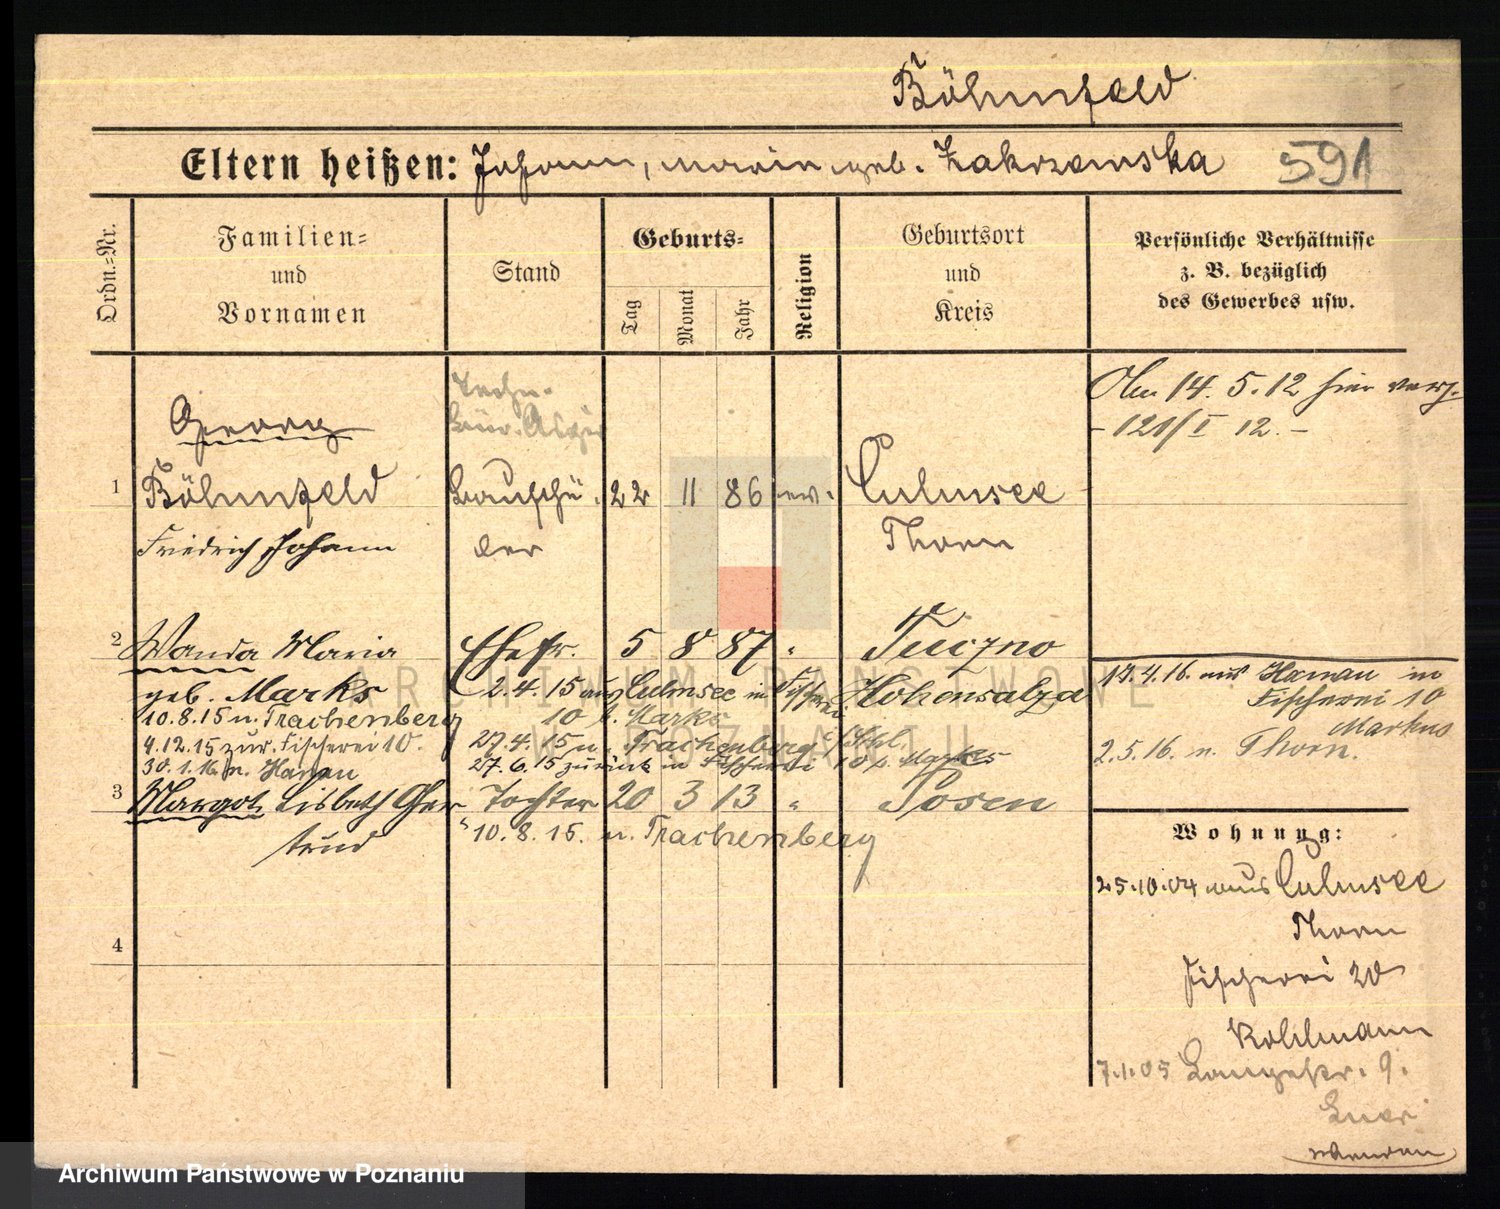 Böhmfeld
Eltern heißen: Johann, Maria geb. Zakrzewska 591
Ordn.=Nr.
Familien=
und
Vornamen
Stand
Geburts=
Tag
Monat
Jahr
Religion
Geburtsort
und
Kreis
Persönliche Verhältnisse
z. B. bezüglich
des Gewerbes usw.
Am 14. 5. 12 hier
- 121/I 12. -
Georg
1 Böhmfeld Bauschü- 22 11 86 ev. Culmsee
Friedrich Johann ler Thorn
2 Wanda Maria Ehefr. 5 8 87 " Tuczno
geb. Marks Hohensalza
2.4.15 aus Culmsee in Fischerei
10 b. Marks
10.8.15 n. Trachenberg
4.12.15 zur. Fischerei 10.
30.1.16 n. Hanau
27.4.15 n. Trachenberg i/Schl.
27.6.15 zurück in Fischerei 10 b. Marks
17.4.16. aus Hanau in
Fischerei 10
Markus
2.5.16. n. Thorn.
3 Margot Lisbeth Ger Tochter 20 3 13 " Posen
trud
" 10. 8. 15. n. Trachenberg
4
Wohnung:
25.10.04 aus Culmsee
Thorn
Fischerei 20
Kohlmann
7.1.05 Langestr. 9.
ARCHIWUM PAŃSTWOWE
W POZNANIU
Archiwum Państwowe w Poznaniu